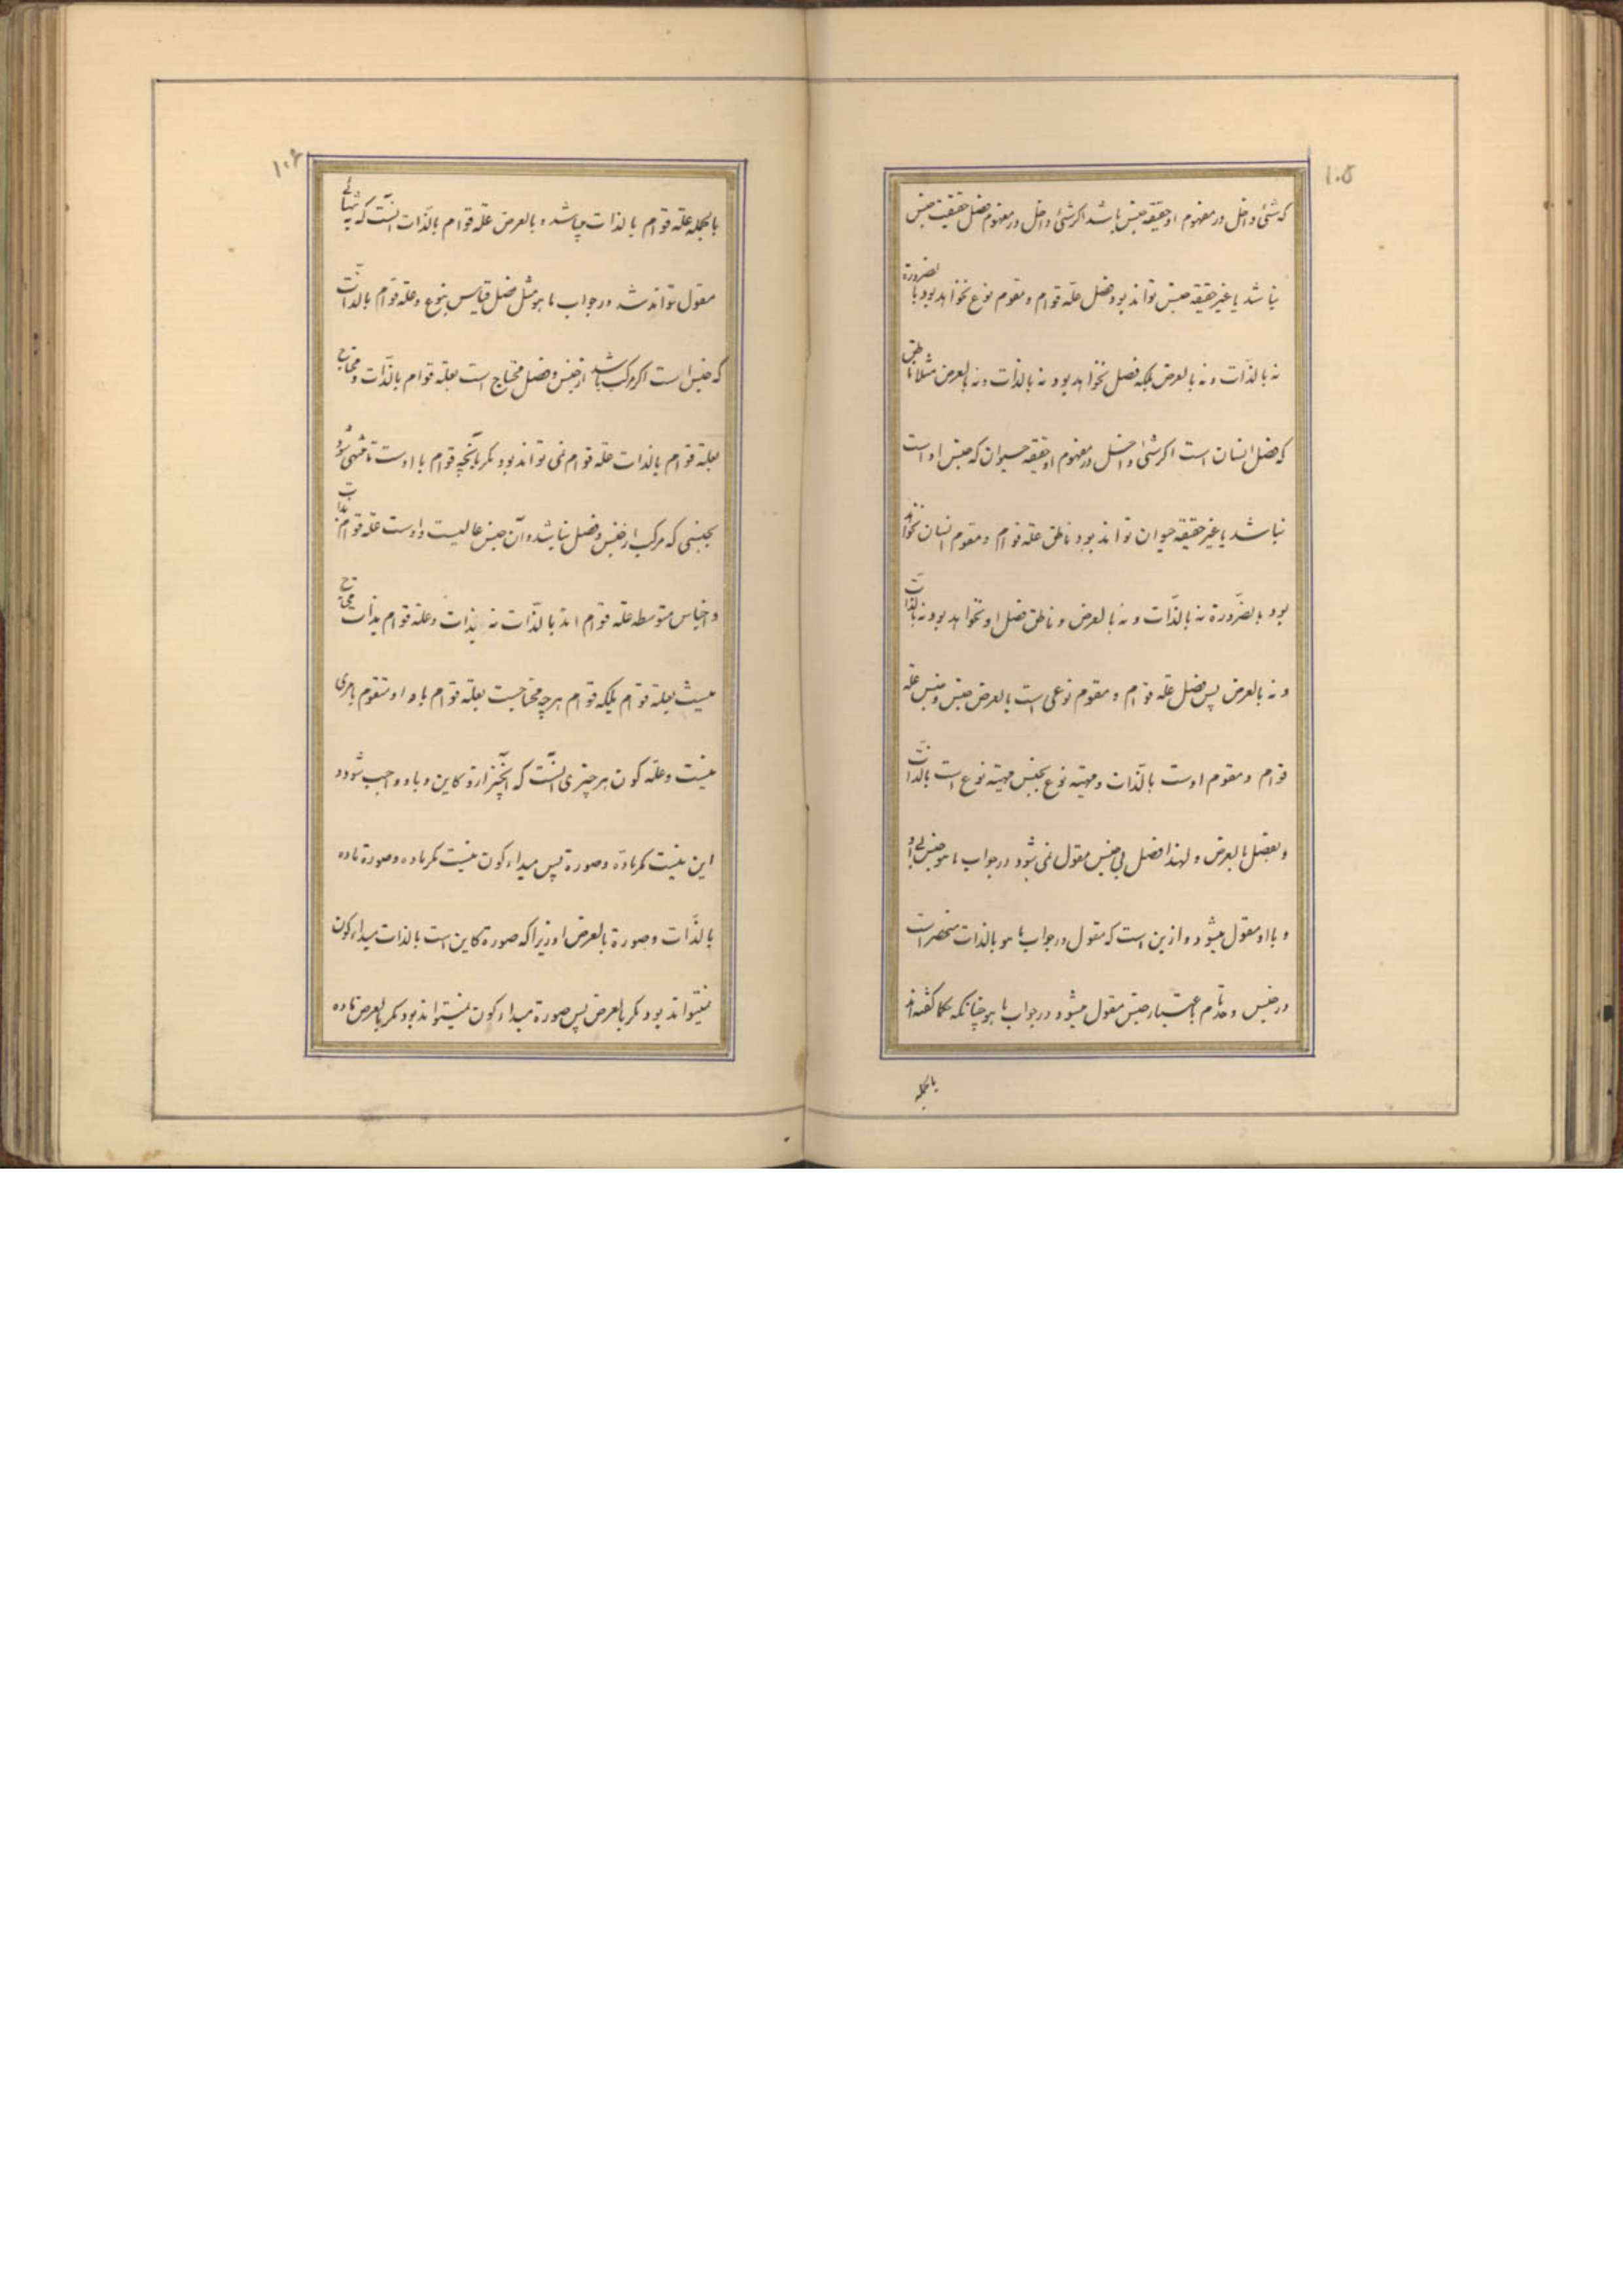 ۱۰۵
که شئ داخل در مفهوم او حقیقة جنس باشد اکر شئ داخل در مفهوم فصل حقیقت جنس
نباشد یا غیر حقیقة جنس تواند بود فصل علة قوام و مقوم نوع نخواهد بود بالضرورة
نه بالذات و نه بالعرض بلکه فصل نخواهد بود نه بالذات و نه بالعرض مثلا ناطق
که فصل انسان است اکر شئ داخل در مفهوم او حقیقة حیوان که جنس او است
نباشد یا غیر حقیقة حیوان تواند بود ناطق علة قوام و مقوم انسان نخواهد
بود بالضرورة نه بالذات و نه بالعرض و ناطق فصل او نخواهد بود نه بالذات
و نه بالعرض پس فصل علة قوام و مقوم نوعی است بالعرض جنس و جنس علة
قوام و مقوم اوست بالذات و مهیته نوع بجنس مهیته نوع است بالذات
و بفصل بالعرض و لهذا فصل بی جنس مقول نمی شود در جواب ما هو و جنس بی او
و با او مقول میشود و ازین است که مقول در جواب ما هو بالذات منحصر است
در جنس و حد تام باعتبار جنس مقول میشود در جواب ما هو چنانکه حکما کفته اند
بالجمله
۱۰۶
بالجمله علة قوام بالذات میباشد و بالعرض علة قوام بالذات آنست که به تنهائی
مقول تواند شد در جواب ما هو مثل فصل قیاس بنوع و علة قوام بالذات
که جنس است اکر مرکب باشد از جنس و فصل محتاج است بعلة قوام بالذات و محتاج
بعلة قوام بالذات علة قوام نمی تواند بود مکر بآنچه قوام با اوست تا منتهی شود
بجنسی که مرکب از جنس و فصل نباشد و آن جنس عالیست و اوست علة قوام بذات
و اجناس متوسطه علة قوام اند بالذات نه بذات و علة قوام بذات محتاج
نیست بعلة قوام بلکه قوام هر چه محتاجست بعلة قوام باو و او متقوم بامری
نیست و علة کون هر چیزی آنست که آنچیز ازو کاین و باو واجب شود و
این نیست مکر ماده و صورة پس مبداء کون نیست مکر ماده و صورة ماده
بالذات و صورة بالعرض او زیرا که صورة کاین است بالذات مبداء کون
نمیتواند بود مکر بالعرض پس صورة مبداء کون نمیتواند بود مکر بالعرض ماده